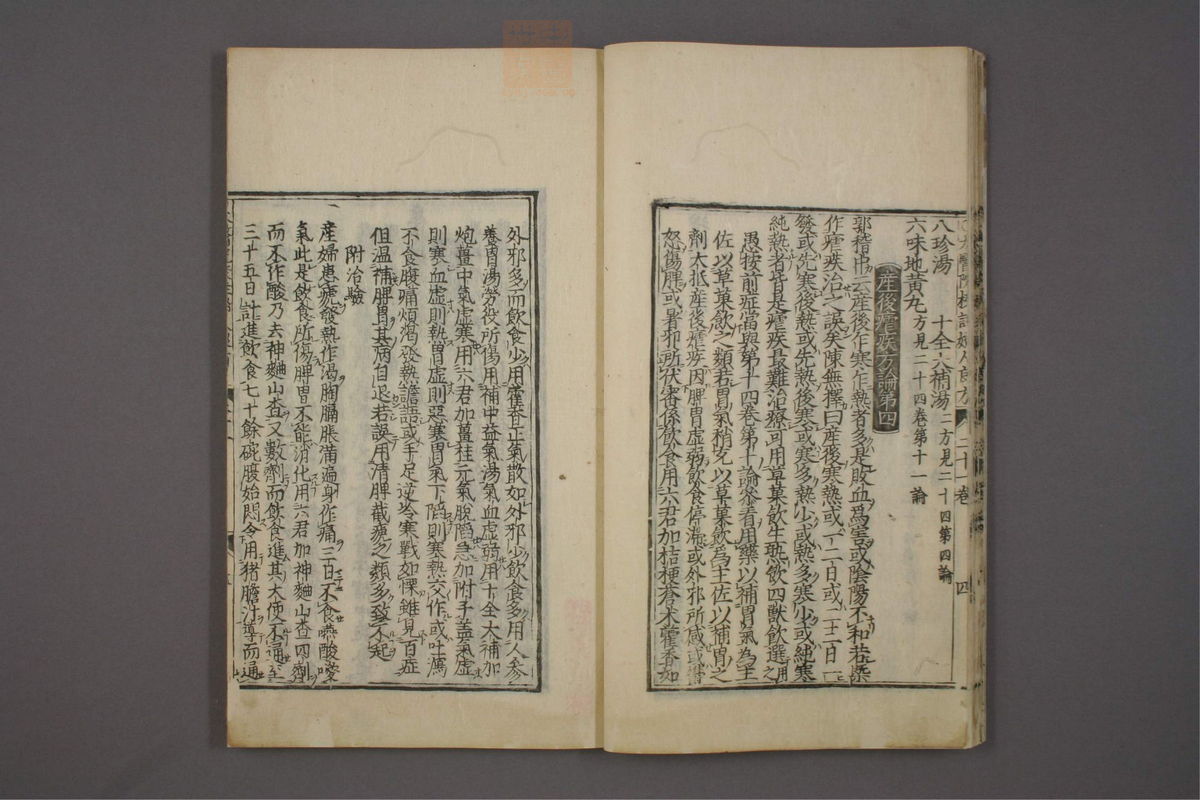 八珍湯　十全大補湯二方見二十四第四論
六味地黃丸方見二十四卷第十一論
産後瘧疾方論第四
郭稽中云産後作寒作熱者多是敗血爲害或陰陽不和若槩
作瘧疾治之誤矣陳無擇曰産後寒熱或一二日或二三日一
發或先寒後熱或先熱後寒或寒多熱少或熱多寒少或純寒
純熱者皆是瘧疾最難治療可用草菓飲生熟飲四獸飲選用之
愚按前症當與第十四卷第十論叅看用藥以補胃氣為主
佐以草菓飲之類若胃氣稍充以草菓飲爲主佐以補胃之
劑大抵産後瘧疾因脾胃虛弱飲食停滯或外邪所感或欝
怒傷脾或暑邪所伏審係飲食用六君加桔梗蒼朮藿香如
外邪多而飲食少用藿香正氣散如外邪少飲食多用人參
養胃湯勞役所傷用補中益氣湯氣血虛弱用十全大補加
炮薑中氣虛寒用六君加薑桂元氣脫陷急加附子蓋氣虛
則寒血虛則熱胃虛則惡寒胃氣下陷則寒熱交作或吐瀉
不食腹痛煩渴發熱譫語或手足逆冷寒戰如慄雖見百症
但溫補脾胃其病自退若誤用清脾截瘧之類多致不起
附治驗
産婦患瘧發熱作渴胸膈脹滿遍身作痛三日不食嚥酸噯
氣此是飲食所傷脾胃不能消化用六君加神麯山查四劑
而不作酸乃去神麯山查又數劑而飲食進其大便不通至
三十五日計進飲食七十餘碗腹始悶令用猪膽汁導而通
二十一卷
四